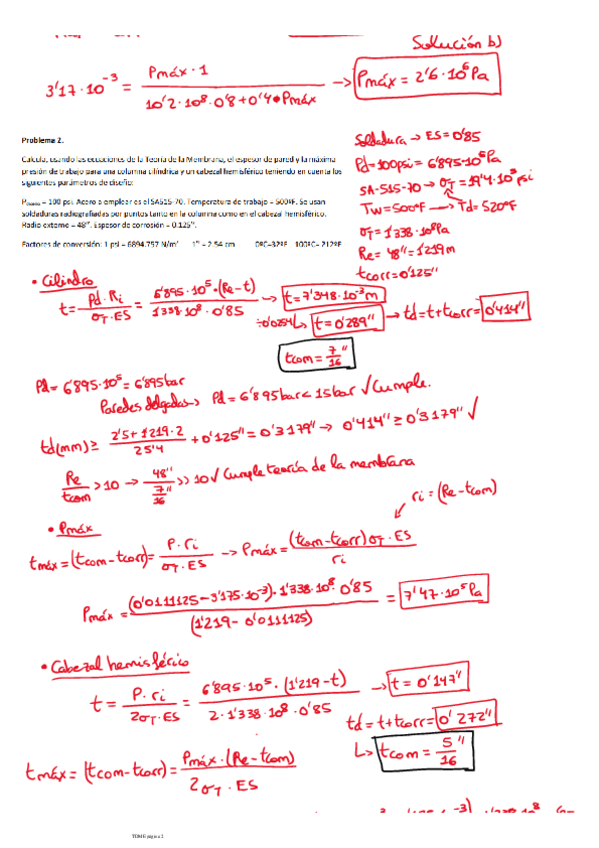 Solución b)
3'17·10⁻³ = Pmáx·1 / 10'2·10⁸·0'8+0'4·Pmáx → Pmáx = 2'6·10⁶Pa
Problema 2.
Calcula, usando las ecuaciones de la Teoría de la Membrana, el espesor de pared y la máxima
presión de trabajo para una columna cilíndrica y un cabezal hemisférico teniendo en cuenta los
siguientes parámetros de diseño:
= 100 psi. Acero a emplear es el SA515-70. Temperatura de trabajo = 500ºF. Se usan
soldaduras radiografiadas por puntos tanto en la columna como en el cabezal hemisférico.
Radio externo = 48". Espesor de corrosión = 0.125".
Factores de conversión: 1 psi = 6894.757 N/m² 1" = 2.54 cm 0ºC=32ºF 100ºC= 212ºF
Soldadura → ES=0'85
Pd=100psi= 6'895·10⁵Pa
SA-515-70 → σT=19'4·10³psi
Tw=500ºF → Td=520ºF
σT=1'338·10⁸Pa
Re= 48"=1'219m
tcorr=0'125"
• Cilindro
t= Pd·Ri / σT·ES = 6'895·10⁵·(Re-t) / 1'338·10⁸·0'85 → t=7'348·10⁻³m
÷0'0254 → t=0'289" → td=t+tcorr=0'414"
tcom= 7/16"
Pd= 6'895·10⁵=6'895bar
Paredes delgadas → Pd=6'895bar<15bar √Cumple.
td(mm)≥ 2'5+1219·2 / 25'4 +0'125"=0'3179" → 0'414"≥0'3179" √
Re/tcom >10 → 48"/(7/16)" >>10 √ Cumple teoría de la membrana
• Pmáx
ri=(Re-tcom)
tmáx=(tcom-tcorr)= P·ri / σT·ES → Pmáx= (tcom-tcorr)σT·ES / ri
Pmáx= (0'0111125-3'175·10⁻³)·1'338·10⁸·0'85 / (1'219-0'0111125) = 7'47·10⁵Pa
• Cabezal hemisférico
t= P·ri / 2σT·ES = 6'895·10⁵·(1'219-t) / 2·1'338·10⁸·0'85 → t=0'147"
td=t+tcorr=0'272"
tcom= 5/16"
tmáx=(tcom-tcorr)= Pmáx·(Re-tcom) / 2σT·ES